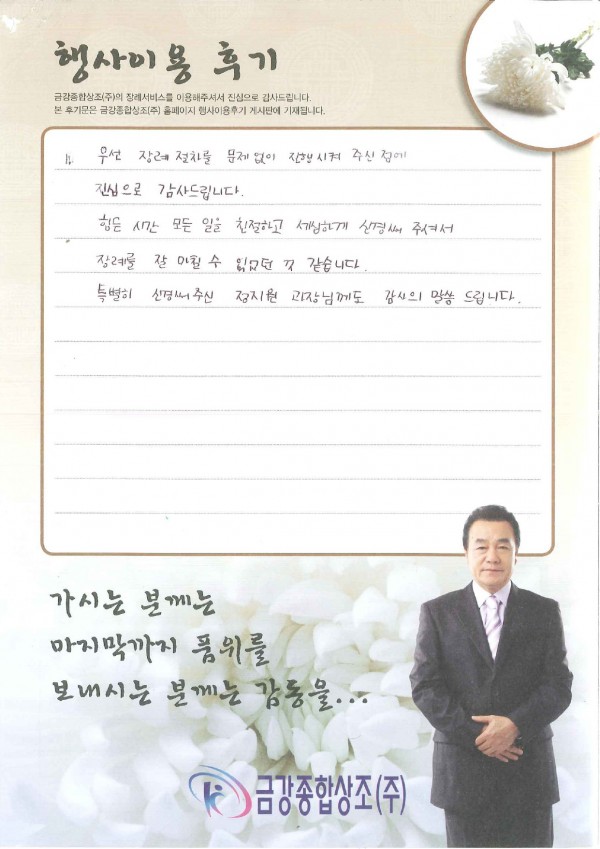 행사이용 후기
금강종합상조(주)의 장례서비스를 이용해주셔서 진심으로 감사드립니다.
본 후기문은 금강종합상조(주) 홈페이지 행사이용후기 게시판에 기재됩니다.
우선 장례 절차를 문제없이 진행시켜 주신 점에
진심으로 감사드립니다.
힘든 시간 모든 일을 친절하고 세심하게 신경써 주셔서
장례를 잘 마칠 수 있었던 것 같습니다.
특별히 신경써주신 정지원 과장님께도 감사의 말씀 드립니다.
가시는 분께는
마지막까지 품위를
보내시는 분께는 감동을...
금강종합상조(주)